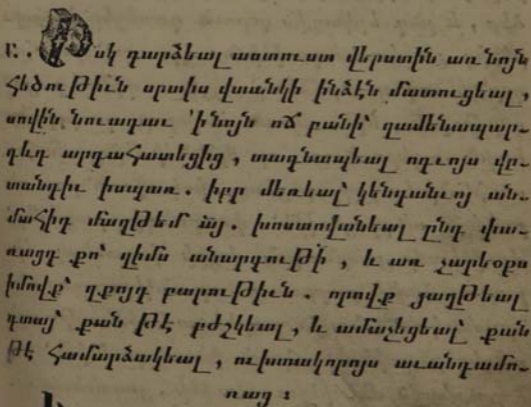 Բ. Իսկ դարձեալ աստուստ վերստին առ նոյն
հեծութիւն սրտիս վտանկի ինձէն մատուցեալ,
սովին նուագաւ ՚ի նոյն ոճ բանի՝ զամենապար-
գևդ արդահատեցից, տագնապեալ ոգւոյս վը-
տանգիւ իսպառ. իբր մեռեալ՝ կենդանւոյ ան-
մահիդ մաղթեմ այ. խոստովանեալ ընդ փա-
ռացդ քո՝ զիմս անարգութի, և առ չարեօքս
իմովք՝ զքոյդ բարութիւն. որովք յաղթեալ
դտայ՝ քան թէ բժշկեալ, և ամաչեցեալ՝ քան
թէ համարձակեալ, ուխտակորոյս աւանդամո-
ռաց :